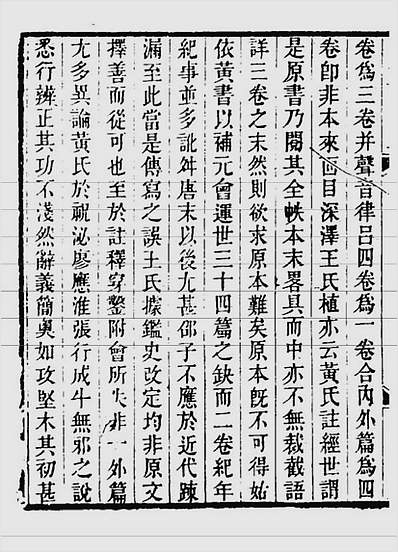 卷爲三卷并聲音律呂四卷爲一卷合內外篇爲四
卷卽非本來面目深澤王氏植亦云黃氏註經世謂
是原書乃閱其全帙本末畧具而中亦不無裁截語
詳三卷之末然則欲求原本難矣原本旣不可得姑
依黃書以補元會運世三十四篇之缺而二卷紀年
紀事並多訛舛唐末以後尤甚邵子不應於近代踈
漏至此當是傳寫之誤王氏據鑑史改定均非原文
擇善而從可也至於註釋穿鑿附會所失非一外篇
尤多異論黃氏於祝泌廖應淮張行成牛無邪之說
悉行辨正其功不淺然辭義簡奧如攻堅木其初甚